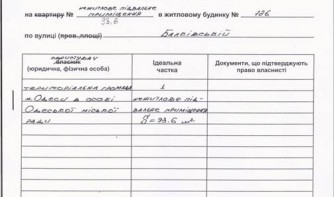 нежитлове підвальне
на квартиру № приміщення в житловому будинку № 126
93.6
по вулиці (пров.,площі) Балківській
користувач
власник
(юридична, фізична особа)
Ідеальна
частка
Документи, що підтверджують
право власності
територіальна громада 1
м.Одеси в особі нежитлове під-
Одеської міської вальне приміщення
ради S=93.6 м²